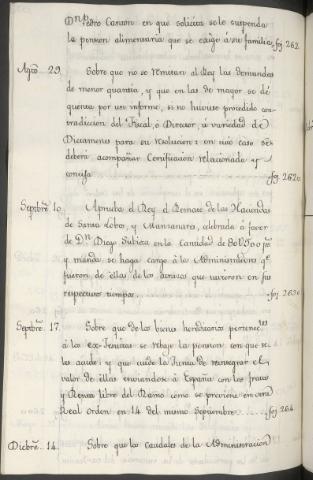 Dn. Pedro Canton en que solicita se le suspenda
la pension alimentaria que se exige á su familia, foj 262.
Agto. 29. Sobre que no se remitan al Rey las Demandas
de menor quantia, y que en las de mayor se dé
quenta por un informe, si no huviese precedido con-
tradiccion del Fiscal, ó Director, ú variedad de
Dictamenes para su resolucion: en cuio caso se
deberá acompañar Certificacion relacionada y
concisa foj. 262
Septbre. 10. Aprueba el Rey el Remate de las Haciendas
de Santa Lobas, y Manzanara, celebrada á favor
de Dn. Diego en la Cantidad de
y manda se haga cargo á los Administradores qe.
fueron de ellas de los atrasos que tuvieron en sus
respectivos tiempos foj. 263
Septbre. 17. Sobre que de los bienes hereditarios pertenectes.
á los ex-Jesuitas se rebaje la pension con que se
les acude: y que cuide la Junta de reintegrar el
valor de ellas enviandose á España con los frutos
y Renta libre del Ramo como se previene en otra
Real Orden en 14 del mismo Septiembre foj. 264
Dicbre. 14. Sobre que los caudales de la Administracion